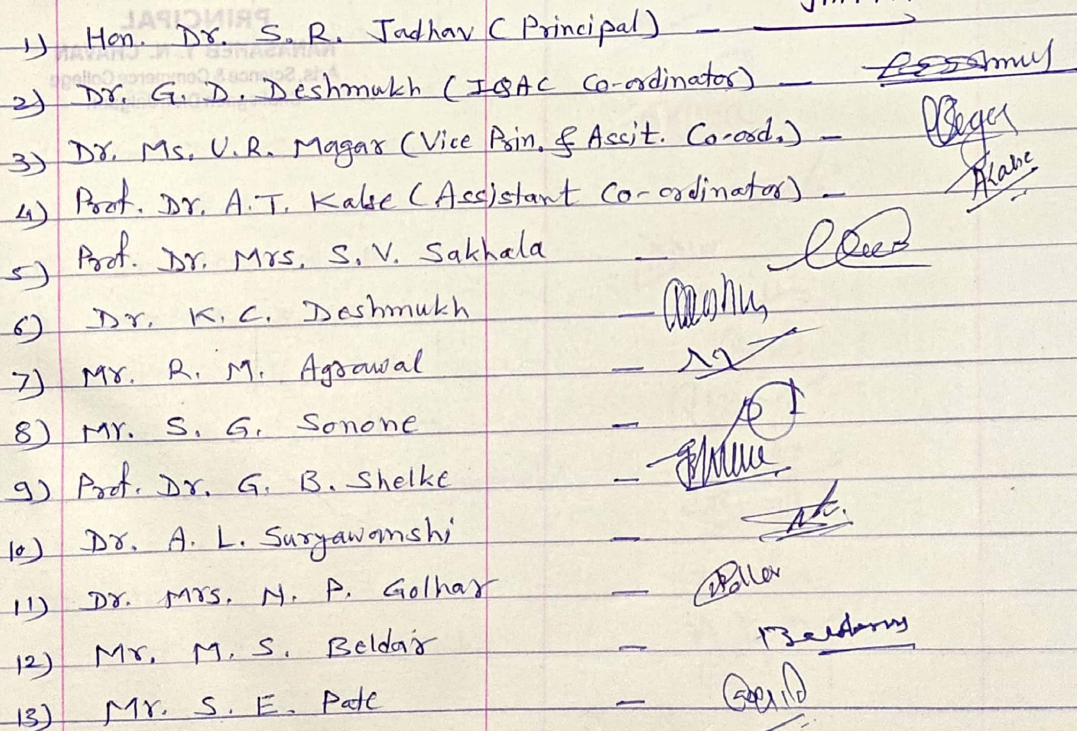 1) Hon. Dr. S. R. Jadhav (Principal) -
2) Dr. G. D. Deshmukh (IQAC Co-ordinator) -
3) Dr. Ms. V. R. Magar (Vice Prin. & Assit. Co-ord.) -
4) Prof. Dr. A. T. Kalse (Assistant Co-ordinator) -
5) Prof. Dr. Mrs. S. V. Sakhala -
6) Dr. K. C. Deshmukh -
7) Mr. R. M. Agrawal -
8) Mr. S. G. Sonone -
9) Prof. Dr. G. B. Shelke -
10) Dr. A. L. Suryawanshi -
11) Dr. Mrs. N. P. Golhar -
12) Mr. M. S. Beldar -
13) Mr. S. E. Pate -